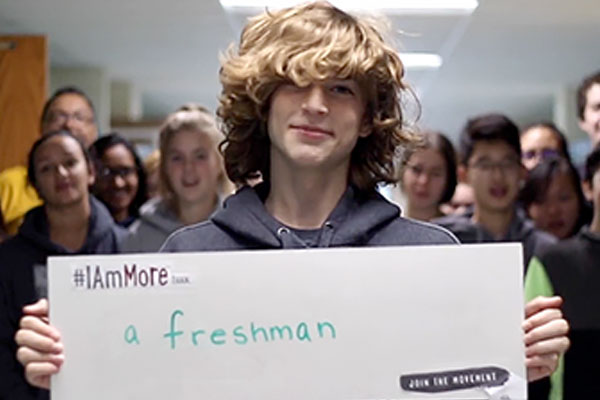 #IAmMore THAN...
a freshman
JOIN THE MOVEMENT